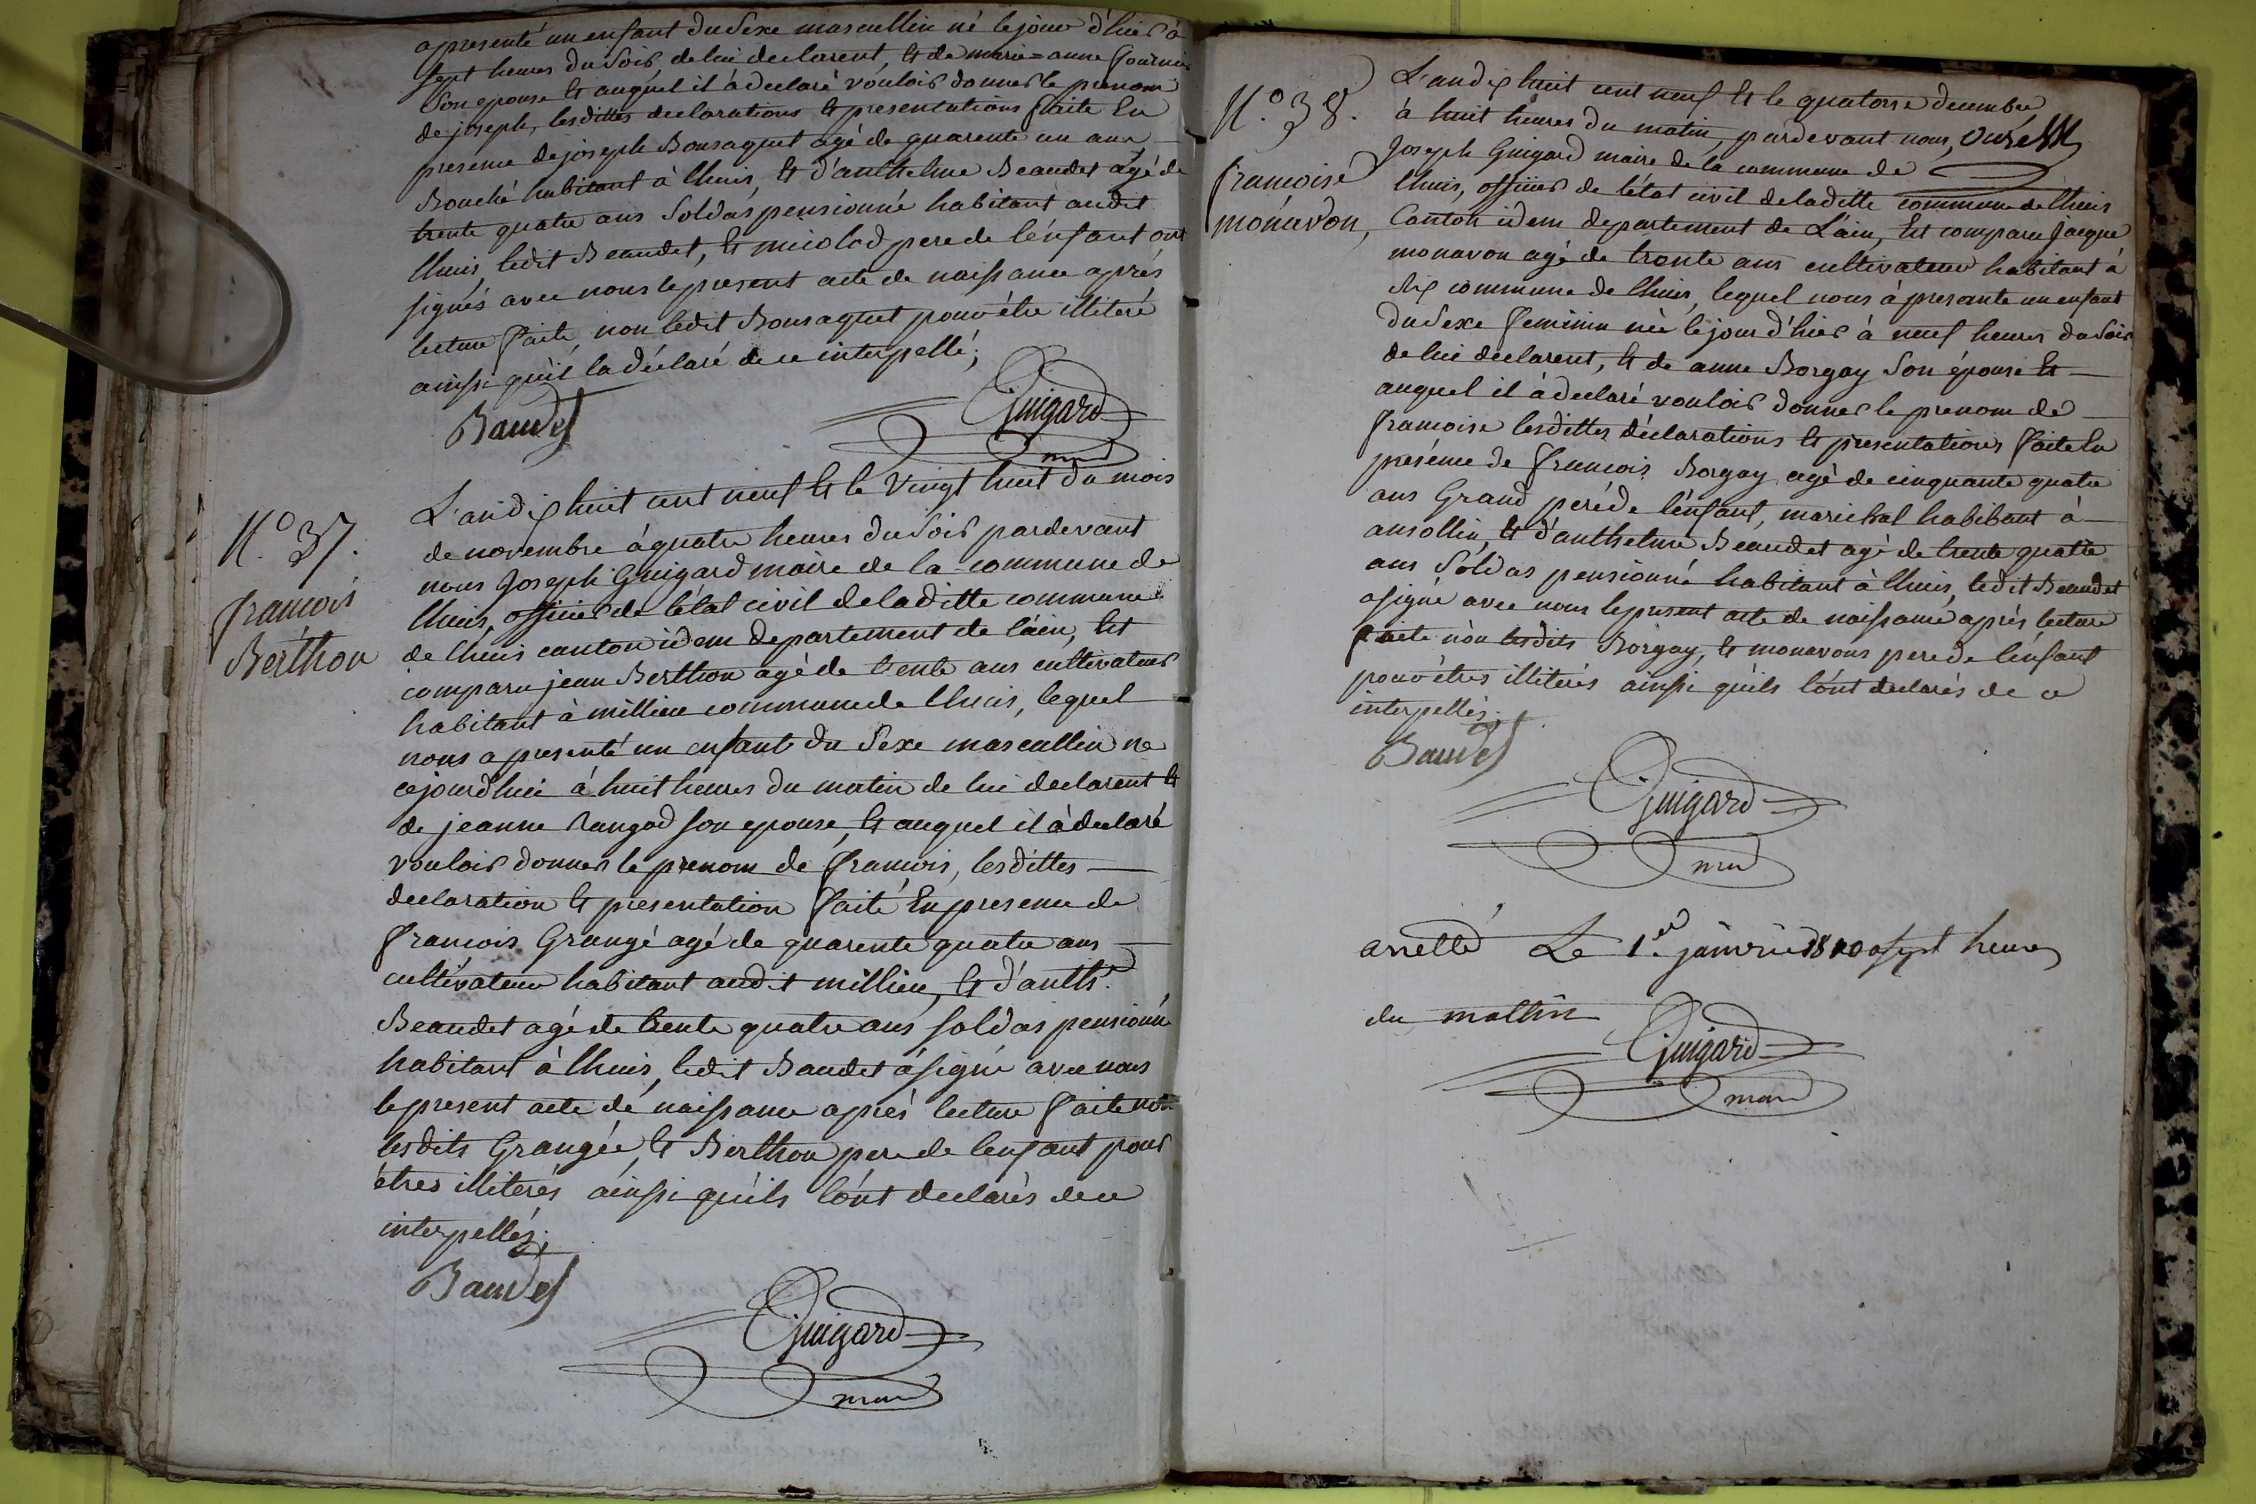 apresenté un enfant du Sexe mascullin né le jour d'hier à
sept heures du Soir de lui declarent, et de marie=anne fournier
Son epouse et auquel il à declaré vouloir donner le prenom
de joseph, lesdittes declarations et presentations faite En
presence de joseph Bonsaquet agé de quarente un ans
Bouché habitant à lhuis, et d'anthelme Beaudet agé de
trente quatre ans Soldas pensionné habitant audit
lhuis, ledit Beaudet, et micolod pere de lénfant ont
signés avec nous le present acte de naissance aprés
lecture faite, non ledit Bonsaquet pour étre illiteré
ainssi quíl la déclaré de ce interpellé;
Baudet
Guigard
N.º 37.
francois
Berthon
L'an dix huit cent neuf et le Vingt huit du mois
de novembre à quatre heures du Soir pardevant
nous Joseph Guigard maire de la commune de
lhuis, officier de letat civil de laditte commune
de lhuis canton idem departement de láin, Est
comparu jean Berthon agé de trente ans cultivateur
habitant à millieu commune de lhuis, lequel
nous a presenté un enfant du Sexe mascullin né
cejourdhui à huit heures du matin de lui declarent et
de jeanne Rangod son epouse, et auquel il à declaré
vouloir donner le prenom de francois, lesdittes
declaration et presentation faite En presence de
francois Grangé agé de quarente quatre ans
cultivateur habitant audit millieu, et d'anth.e
Beaudet agé de trente quatre ans soldas pensionné
habitant à lhuis, ledit Baudet à signé avec nous
le present acte de naissance aprés lecture faite non
lesdits Grangée, et Berthon pere de lenfant pour
étres illiterés ainssi quíls lónt declarés de ce
interpellés;
Baudet
Guigard
N.º 38.
francoise
monavon,
L'an dix huit cent neuf et le quatorse decembre
à huit heures du matin, pardevant nous,
Joseph Guigard maire de la commune de
lhuis, officier de l'état civil de laditte commune de lhuis
Canton idem departement de Láin, Est comparu jacque
monavon agé de trente ans cultivateur habitant à
commune de lhuis, lequel nous à presente un enfant
du Sexe feminin née le jour d'hier à neuf heures du Soir
de lui declarent, et de anne Borgay Son épouse Et
auquel il à declaré vouloir donner le prenom de
francoise lesdittes déclarations et presentations faite En
présence de francois Borgay agé de cinquante quatre
ans Grand pere de lénfant, marichal habitant à
ansollin, et d'anthelme Beaudet agé de trente quatre
ans Soldas pensionné habitant à lhuis, ledit Beaudet
a signé avec nous le present acte de naissance aprés lecture
faite nòn lesdits Borgay, et monavons pere de lénfant
pour étres illiterés ainssi quíls lónt declarés de ce
interpellés;
Baudet
Guigard
arretté Le 1.er janvrie 1810 a sept heures
du mattin
Guigard